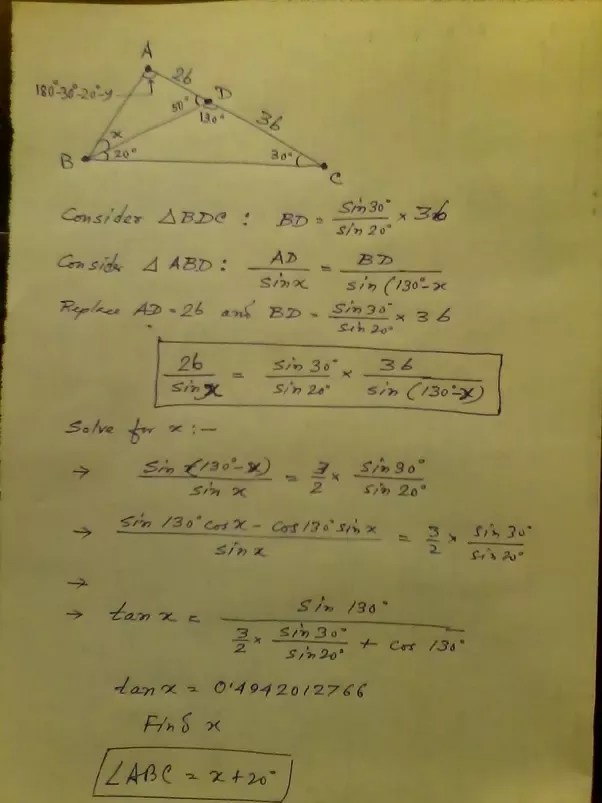 A
2b
180°-30°-20°-y
50°
D
130°
3b
x
B
20°
30°
C
Consider △BDC : BD = sin30°/sin20° × 3b
Consider △ ABD : AD/sin x = BD/sin (130°-x
Replace AD=2b and BD = sin30°/sin20° × 3b
2b/sin x = sin 30°/sin 20° × 3b/sin (130°-x)
Solve for x :-
→ sin (130°-x)/sin x = 3/2 × sin30°/sin 20°
→ sin 130° cos x - cos 130° sin x/sin x = 3/2 × sin 30°/sin 20°
→
→ tan x = sin 130°/3/2 × sin 30°/sin 20° + cos 130°
tan x = 0.4942012766
Find x
∠ABC = x + 20°